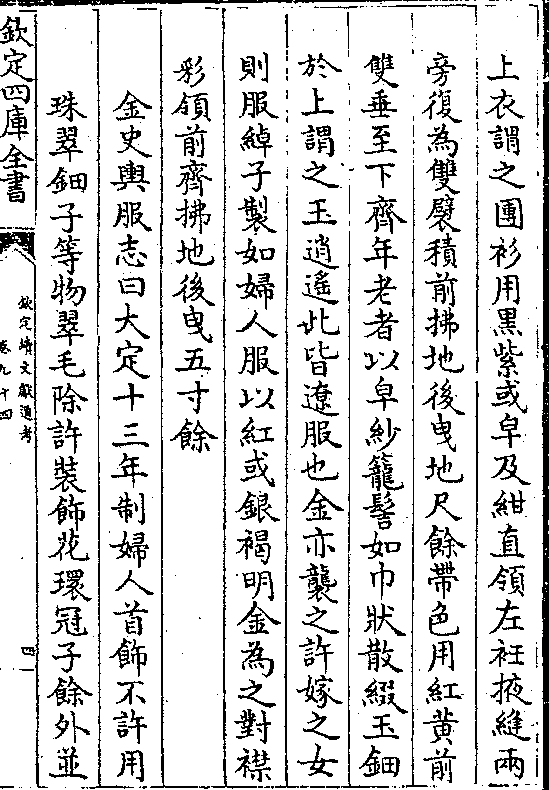 上衣謂之團衫用黒紫或皁及紺直領左衽掖縫兩
旁復為雙襞積前拂地後曳地尺餘帶色用紅黄前
雙垂至下齊年老者以皁紗籠髻如巾狀散綴玉鈿
於上謂之玉逍遙此皆遼服也金亦襲之許嫁之女
則服綽子製如婦人服以紅或銀褐明金為之對襟
彩領前齊拂地後曳五寸餘
金史輿服志曰大定十三年制婦人首飾不許用
珠翠鈿子等物翠毛除許裝飾花環冠子餘外並
欽定四庫全書
欽定續文獻通考
卷九十四
四一